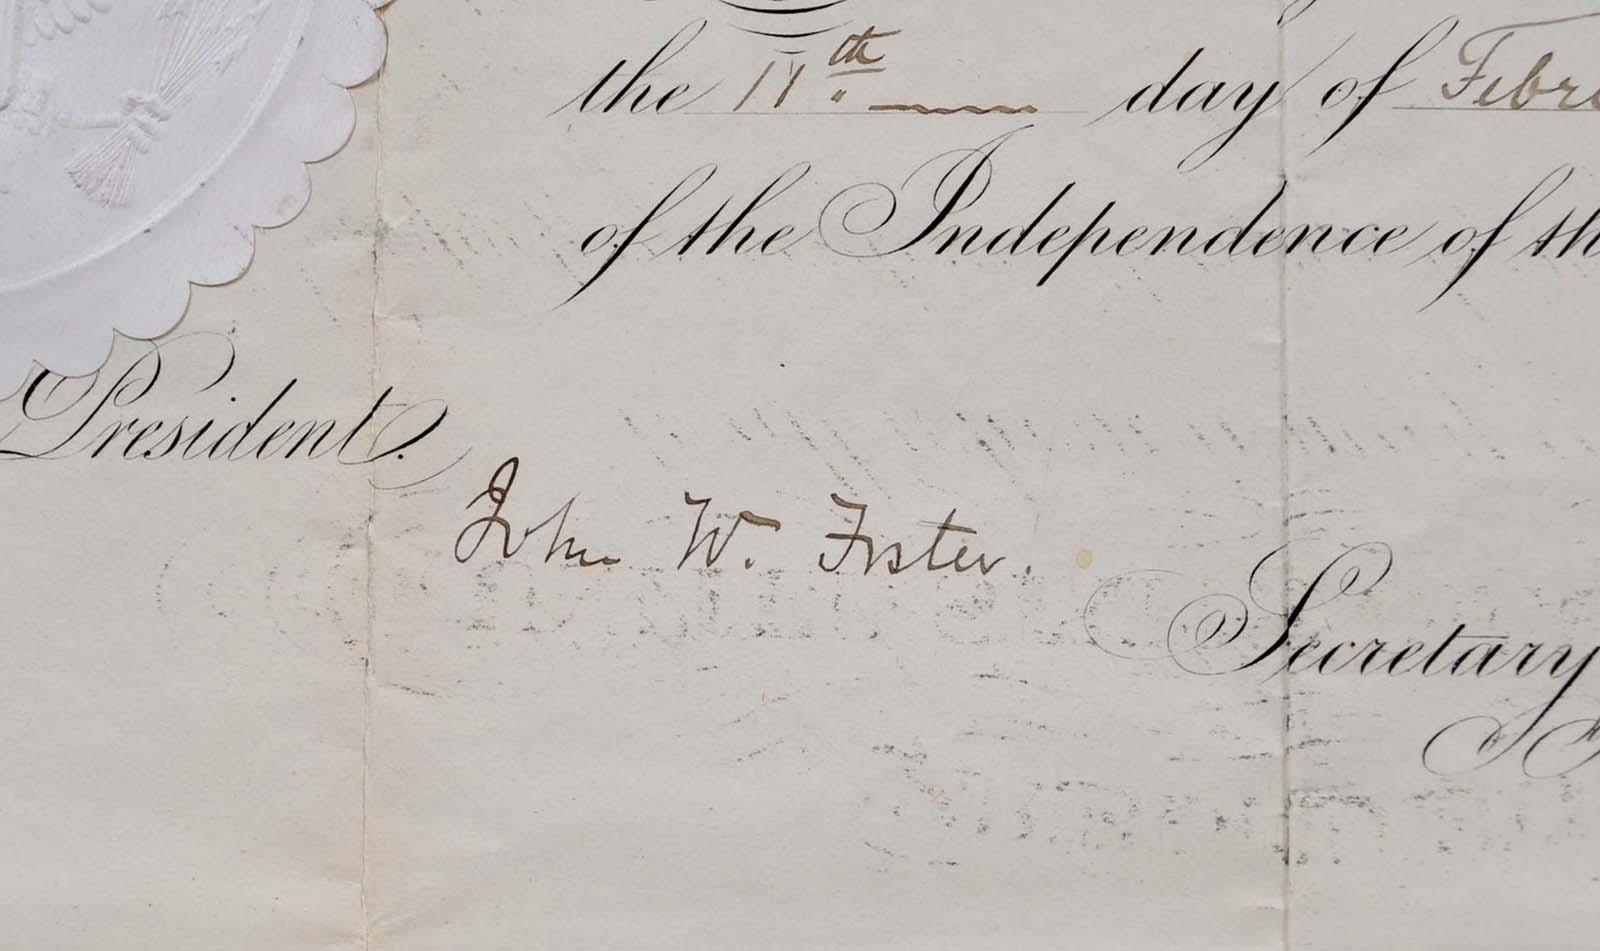 the 11th. day of Febr
of the Independence of th
President.
John W. Foster.
Secretary